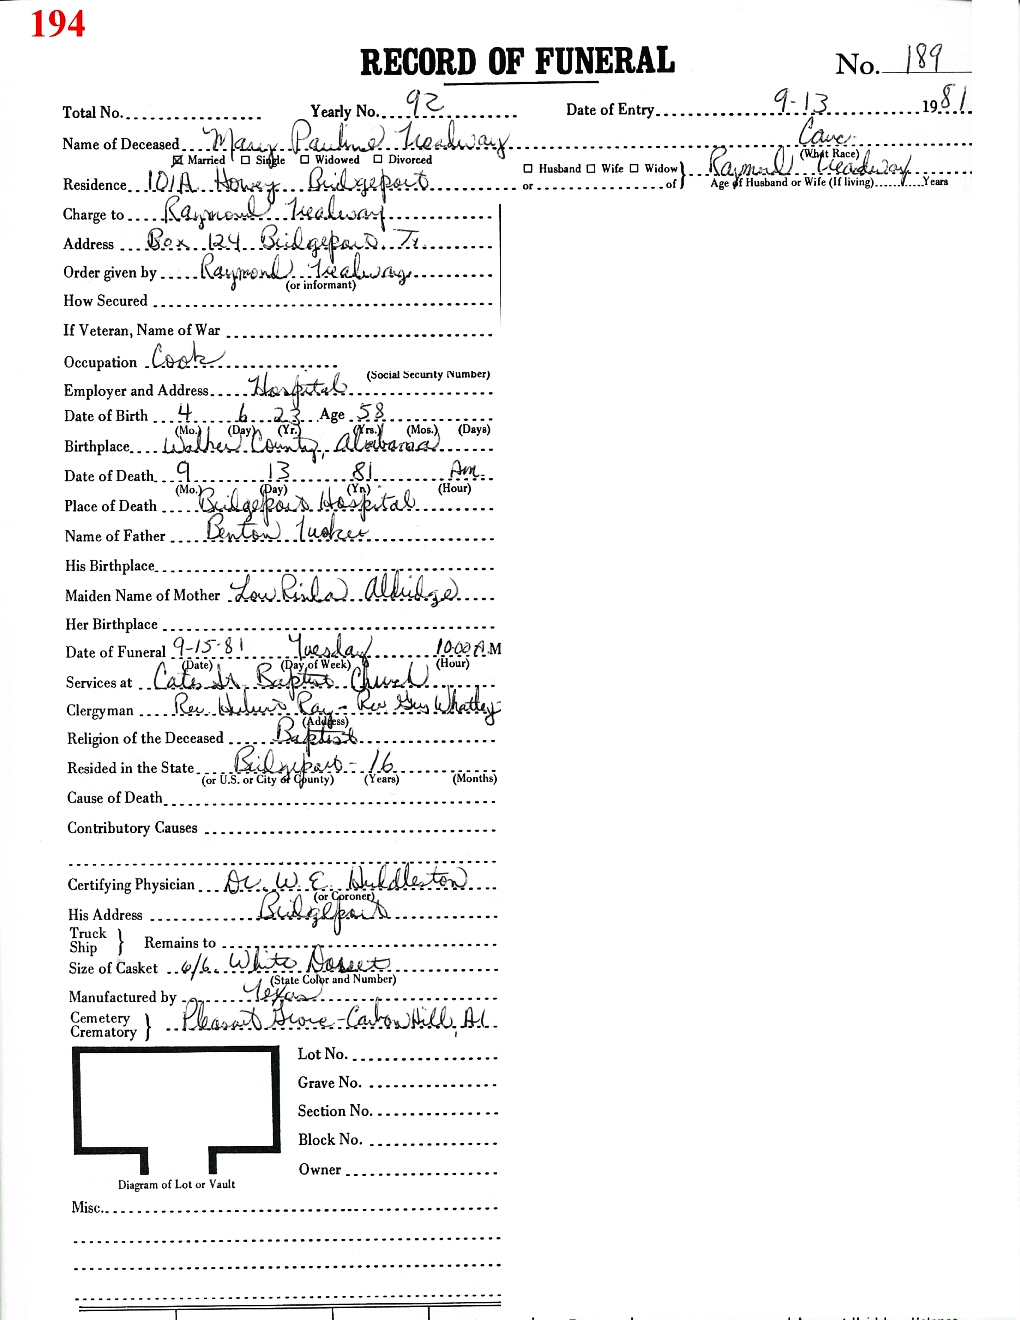 194
RECORD OF FUNERAL
No. 189
Total No. Yearly No. 92 Date of Entry 9-13 1981
Name of Deceased Mary Pauline Treadway Cauc.
☒ Married ☐ Single ☐ Widowed ☐ Divorced (What Race)
☐ Husband ☐ Wife ☐ Widow } Raymond Treadway
Residence 101A Hovey Bridgeport or of } Age of Husband or Wife (If living) Years
Charge to Raymond Treadway
Address Box 124 Bridgeport Tx
Order given by Raymond Treadway
(or informant)
How Secured
If Veteran, Name of War
Occupation Cook
(Social Security Number)
Employer and Address Hospital
Date of Birth 4 6 23 Age 58
(Mo.) (Day) (Yr.) (Yrs.) (Mos.) (Days)
Birthplace Walker County, Alabama
Date of Death 9 13 81 Am
(Mo.) (Day) (Yr.) (Hour)
Place of Death Bridgeport Hospital
Name of Father Benton Tucker
His Birthplace
Maiden Name of Mother Aldridge
Her Birthplace
Date of Funeral 9-15-81 Tuesday 10:00 A.M
(Date) (Day of Week) (Hour)
Services at Cates St. Baptist Church
Clergyman Rev. Ray - Rev Gus Whatley
(Address)
Religion of the Deceased Baptist
Resided in the State Bridgeport - 16
(or U.S. or City of County) (Years) (Months)
Cause of Death
Contributory Causes
Certifying Physician Dr. W. E. Huddleston
(or Coroner)
His Address Bridgeport
Truck
Ship } Remains to
Size of Casket 6/6 White Dorset
(State Color and Number)
Manufactured by Texas
Cemetery
Crematory } Pleasant Grove - Carbon Hill, Al
Lot No.
Grave No.
Section No.
Block No.
Owner
Diagram of Lot or Vault
Misc.